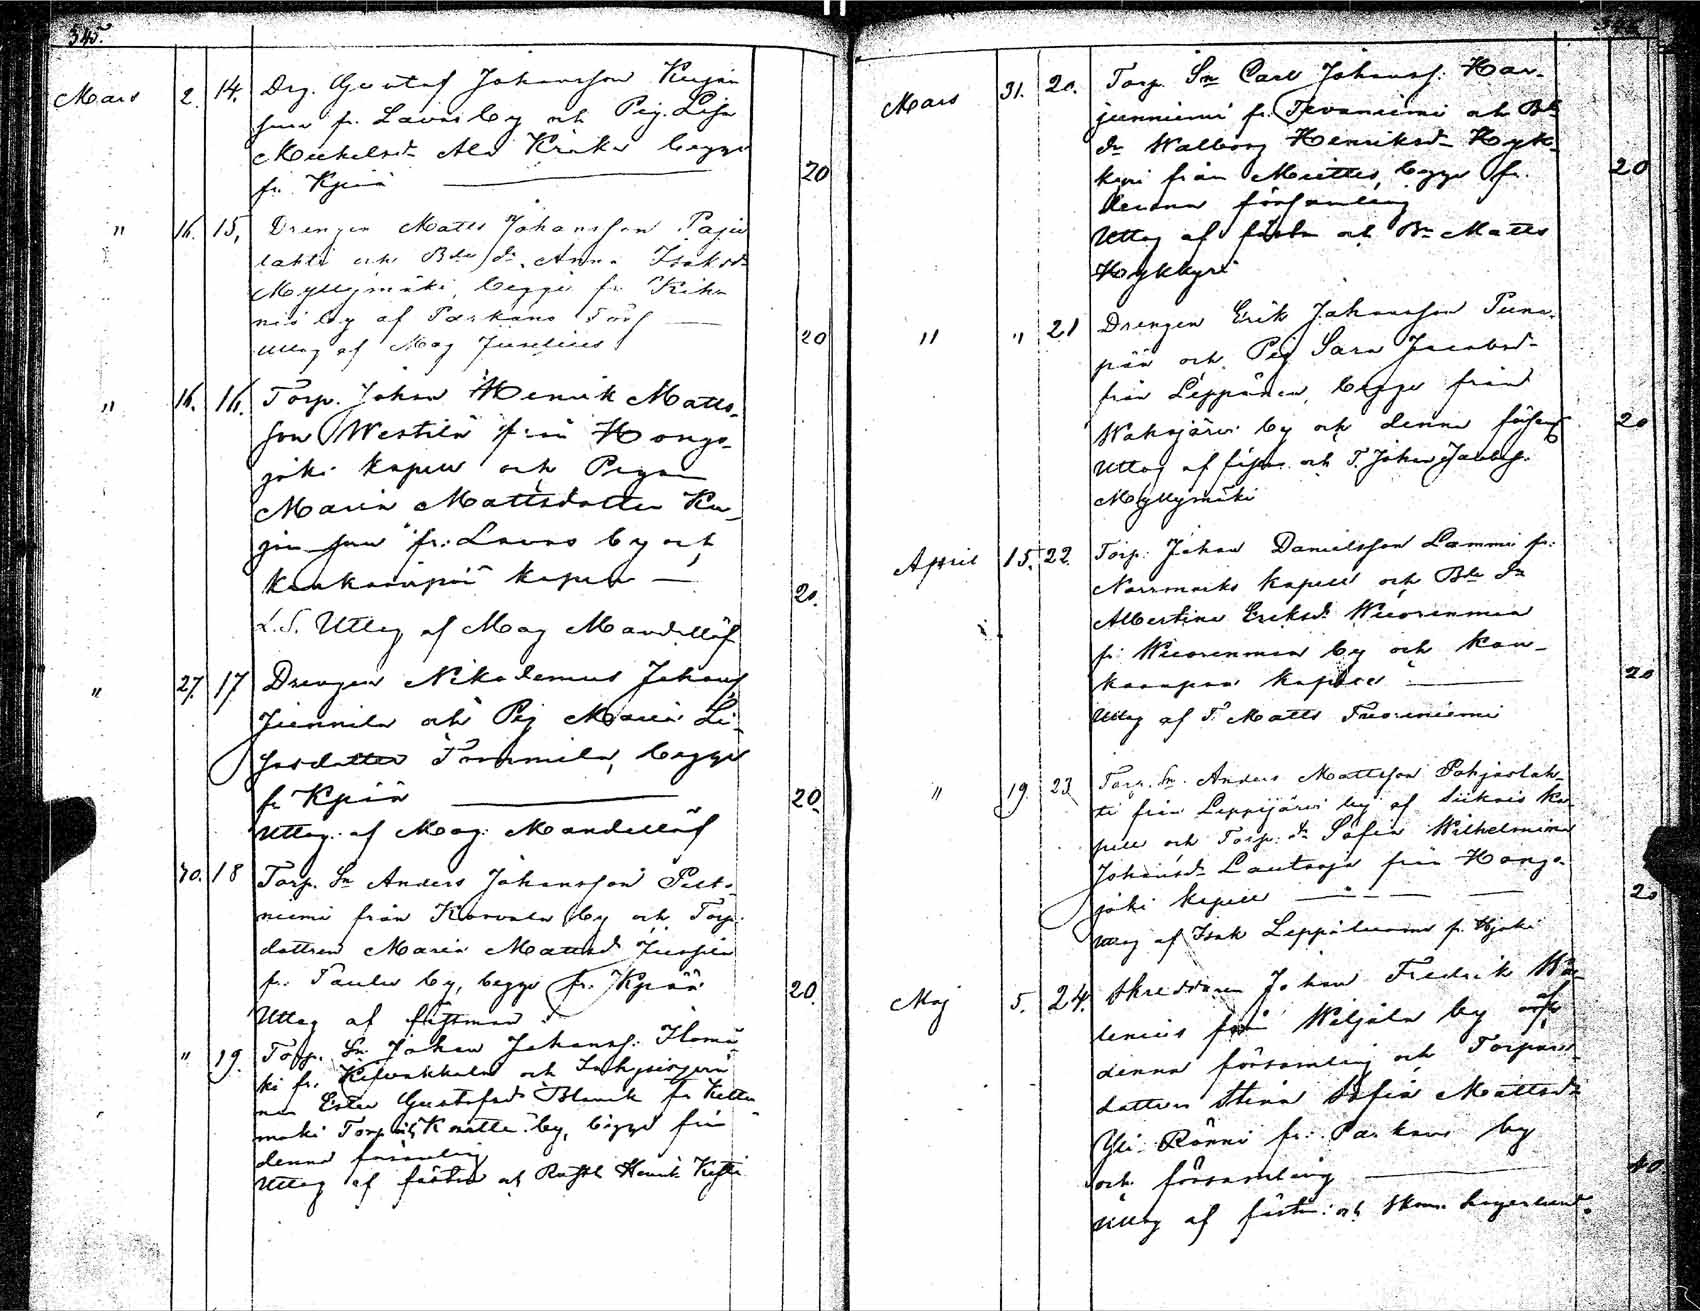 345.
Mars 2. 14. Drg. Gustaf Johansson Kujan
suu fr. Lavia by och Pig. Lisa
Michelsd. Ala Kraka begge
fr. Kpiä 20
" 16. 15. Drengen Matts Johansson Paju
lahti och Bde dr. Anna Isaksd.
Myllymäki, begge fr. Kihn
niö by af Parkano Förs
Uttog af Mag Juselius 20
" 16. 16. Torp. Johan Henrik Matts-
son Westilä från Hongo-
joki kapell och Pigan
Maria Mattsdotter Ku-
jan suu fr: Lavia by och
Kankaanpää kapell 20.
L.S. Uttog af Mag Mandellöf
" 27. 17 Drengen Nikodemus Johanss
Junnila och Pig Maria
dotter Tommila, begge
fr Kpiän 20.
Uttog: af Mag: Mandellöf
30. 18 Torp. Sn Anders Johansson Pelto-
niemi från Karvala by och Torp.
dottren Maria Mattsd Jussila
fr. Taulu by, begge fr. Kpiää 20.
Uttog af fästman
" 19. Torp. Sn Johan Johanss: Ilomä
ki fr. och Inhysis
nan Ester Gustafsd. Blomk fr Ketto
mäki Torp by, begge från
denna församling
Uttog af fästm och Henrik
Mars 31. 20. Torp. Sn Carl Johanss: Har-
junniemi fr. Tevaniemi och Bde
dr Walborg Henriksd. Hyk-
kyri från Miettis, begge fr. 20
denna församling
Uttog af fästm och Bn Matts
Hykkyri
" " 21 Drengen Erik Johansson Puna-
pää och Pig Sara Jacobsd.
från Leppänen, begge från
Wahojärvi by och denna förs 20
Uttog af fästm. och T. Johan Jacobss.
Myllymäki
April 15. 22. Torp. Johan Danielsson Lammi fr.
Norrmarks kapell och Bde dr
Albertina Eriksd. Wuorenmaa
fr. Wuorenmaa by och Kan-
kaanpää kapell 20
Uttog af T. Matts Tuoreniemi
" 19. 23. Torp. Sn. Anders Mattsson Pohjaslah-
ti från Leppijärvi by af Siikais ka-
pell och Torp. dr Sofia Wilhelmina
Johansd. Lautaoja från Hongo-
joki kapell 20
Uttog af Isak Leppälun fr. Hjoki
Maj 5. 24. Skreddaren Johan Fredrik Wa-
lenius från Weljala by af
denna församling och Torpare-
dottren Stina Sofia Mattsd.
Yli Rönni fr. Parkano by
och församling 40
Uttog af fästm. och Skom. Lagerlund.